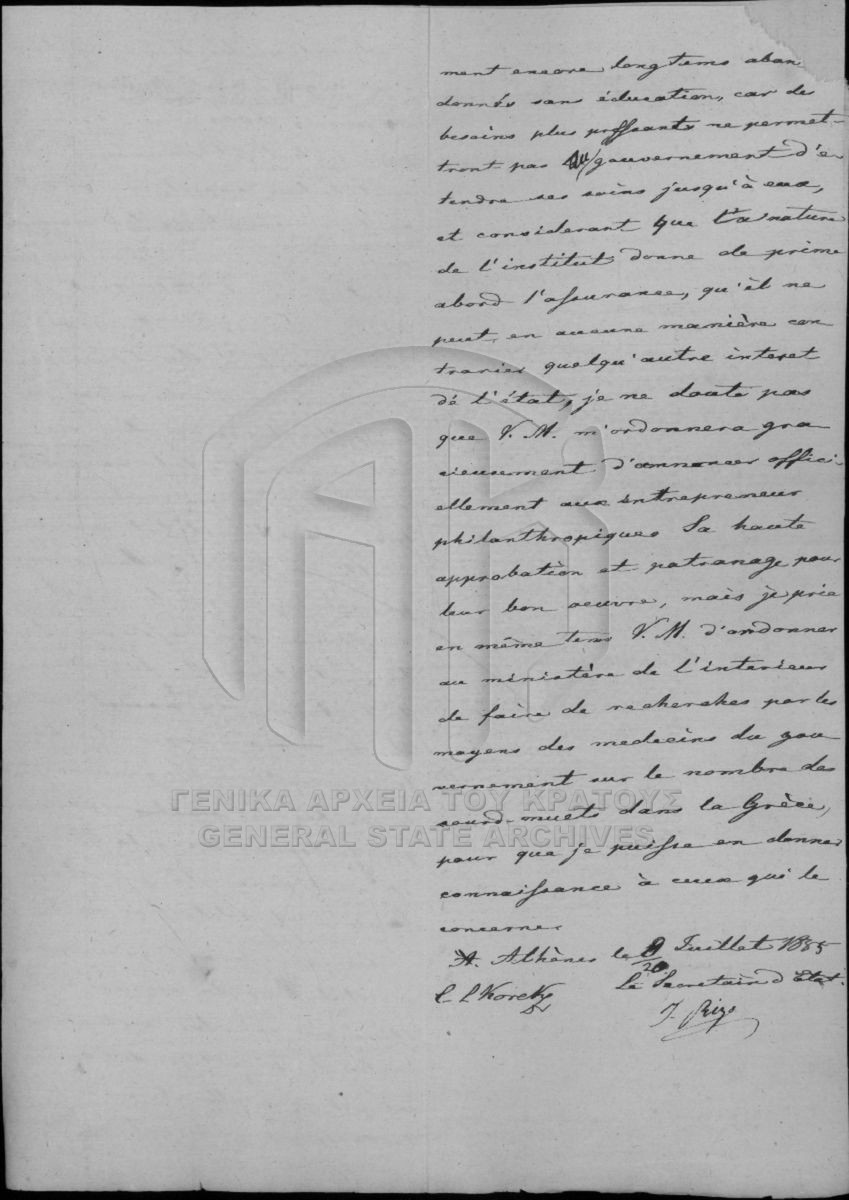 ment encore longtems aban
donnés sans éducation, car de
besoins plus pressants ne permet-
tront pas au gouvernement d'e
tendre ses soins jusqu'à eux,
et considerant que la nature
de l'institut donne de prime
abord l'assurance, qu'il ne
peut, en aucune manière con
trarier quelqu'autre interet
de l'état, je ne doute pas
que V. M. m'ordonnera gra
cieusement d'annoncer offici
ellement aux entrepreneur
philanthropiques Sa haute
approbation et patronage pour
leur bon oeuvre, mais je prie
en même tems V. M. d'ordonner
au ministère de l'interieur
de faire de recherches par les
moyens des medecins du gou
vernement sur le nombre des
sourd-muets dans la Grèce,
ΓΕΝΙΚΑ ΑΡΧΕΙΑ ΤΟΥ ΚΡΑΤΟΥΣ
GENERAL STATE ARCHIVES
pour que je puisse en donner
connaissance à ceux qui le
concerne.
A. Athènes le 8/20 Juillet 1835
Le Secretair d'Etat.
J. Rizo